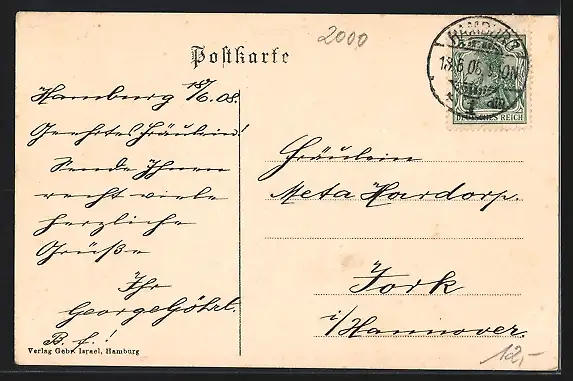 2000
Postkarte
HAMBURG
1
DEUTSCHES REICH
Hamburg 18/6.08.
Geehrtes Fräulein!
Sende Ihnen
recht viele
herzliche
Grüße
Ihr
George
B. f.!
Verlag Gebr. Israel, Hamburg
Fräulein
Meta Hardorp
Jork
i/Hannover.
12,-